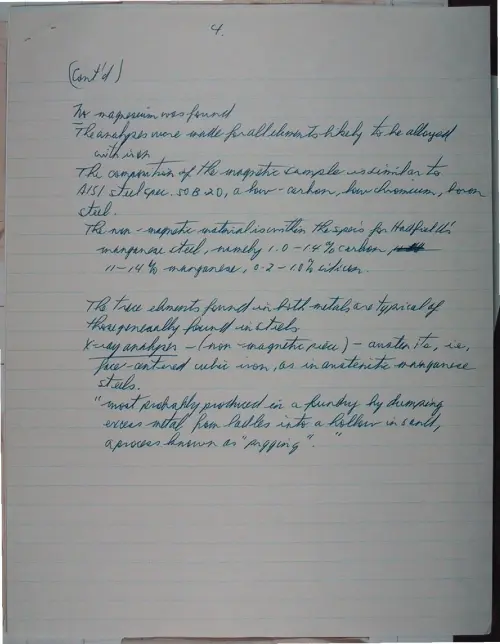 4.
(Cont'd)
No magnesium was found
The analyses were made for all elements likely to be alloyed
with iron
The composition of the magnetic sample is similar to
AISI steel spec. 50 B 20, a low-carbon, low chromium, boron
steel.
The non-magnetic material is within the specs for Hadfield's
manganese steel, namely 1.0-1.4% carbon,
11-14% manganese, 0.2-1.0% silicon.
The trace elements found in both metals are typical of
those generally found in steels
X-ray analyses - (non-magnetic piece) - austenite, i.e.,
face-centered cubic iron, as in austenitic manganese
steels.
"most probably produced in a foundry by dumping
excess metal from ladles into a hollow in sand,
a process known as "pigging"."